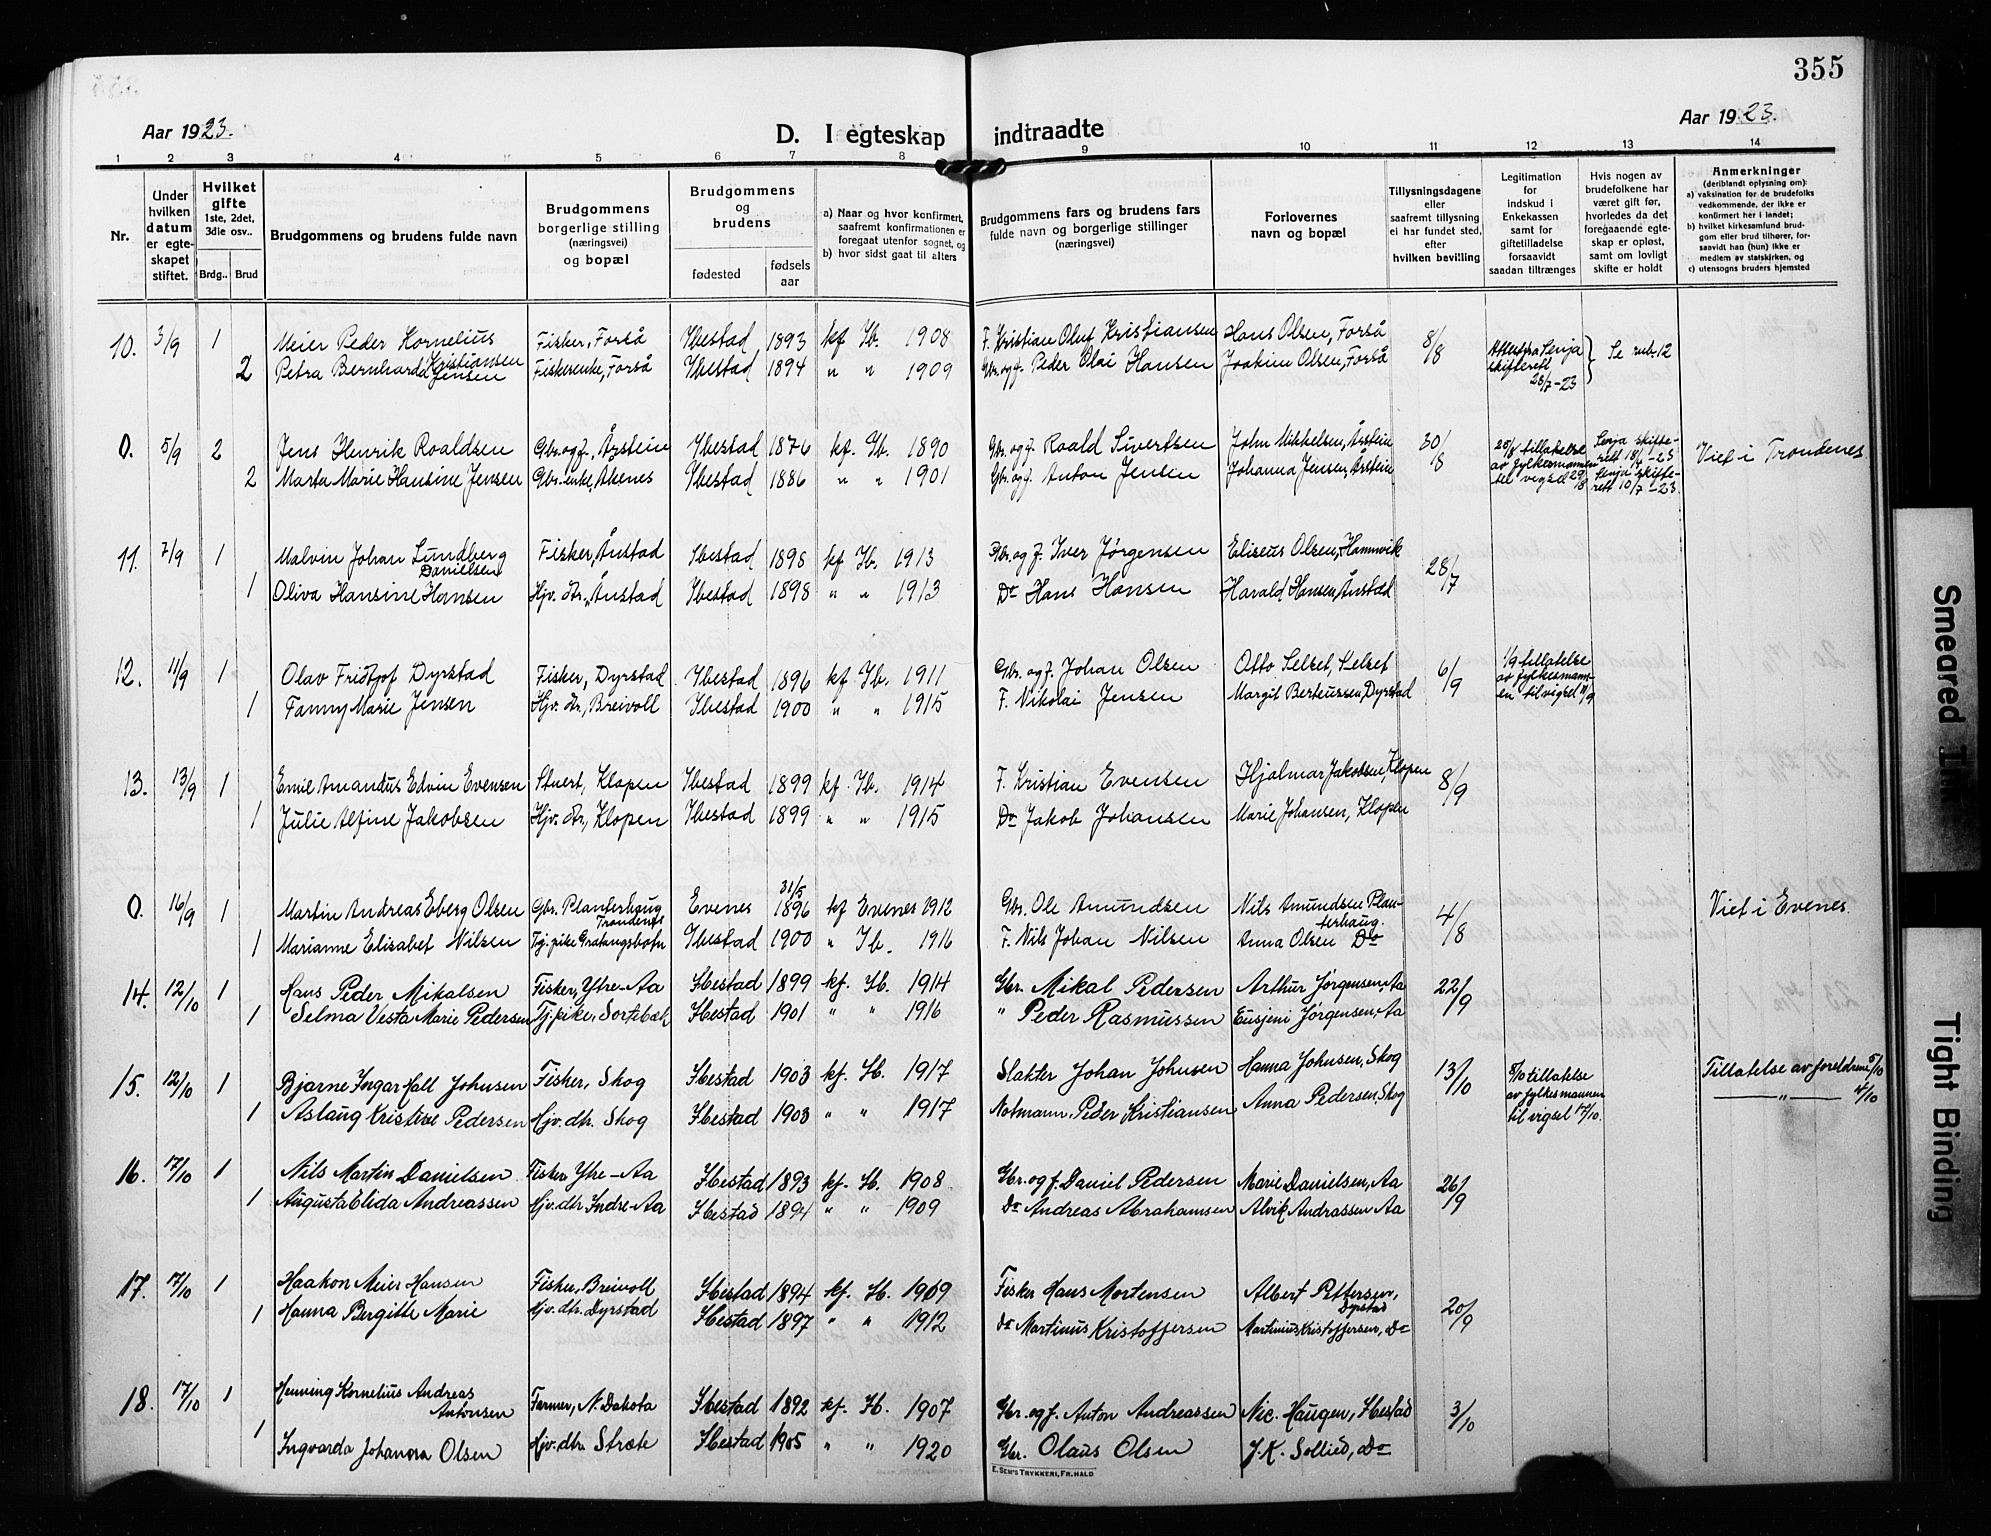 355
Aar 1923.
D. I egteskap indtraadte
Aar 1923.
1 2 3 4 5 6 7 8 9 10 11 12 13 14
Nr.
Under hvilken datum er egteskapet stiftet.
Hvilket gifte 1ste, 2det, 3die osv..
Brdg.. Brud
Brudgommens og brudens fulde navn
Brudgommens borgerlige stilling (næringsvei) og bopæl
Brudgommens og brudens
fødested
fødselsaar
a) Naar og hvor konfirmert, saafremt konfirmationen er foregaat utenfor sognet, og
b) hvor sidst gaat til alters
Brudgommens fars og brudens fars fulde navn og borgerlige stillinger (næringsvei)
Forlovernes navn og bopæl
Tillysningsdagene eller saafremt tillysning ei har fundet sted, efter hvilken bevilling
Legitimation for indskud i Enkekassen samt for giftetilladelse forsaavidt saadan tiltrænges
Hvis nogen av brudefolkene har været gift før, hvorledes da det foregaaende egteskap er opløst, samt om lovligt skifte er holdt
Anmerkninger (deriblandt oplysning om): a) vaksination for de brudefolks vedkommende, der ikke er konfirmert her i landet; b) hvilket kirkesamfund brudgom eller brud tilhører, forsaavidt han (hun) ikke er medlem av statskirken, og c) utensogns bruders hjemsted
10. 3/9 1 Meier Peder Kornelius Kristiansen Fisker, Forså Ibestad 1893 kf Ib. 1908 F. Kristian Oluf Kristiansen Hans Olsen, Forså 8/8 Attest fra Senja skifterett 28/7-23 Se rub. 12
2 Petra Bernhard Jensen Fiskerenke, Forså Ibestad 1894 " " 1909 Gbr. og f. Peder Olai Hansen Joakim Olsen, Forså
0. 5/9 2 Jens Henrik Roaldsen Gbr. og f., Årstein Ibestad 1876 kf. Ib. 1890 Gbr. og f. Roald Sivertsen John Mikkelsen, Årstein 30/8 25/8 tillatelse av fylkesmannen til vigsel 29/8 Senja skifterett 18/6-23 Senja skifterett 10/7-23 Viet i Trondenes
2 Marta Marie Hansine Jensen Gbr-enke, Akenes Ibestad 1886 " " 1901 Gbr. og f. Anton Jensen Johanna Jensen, Årstein
11. 7/9 1 Malvin Johan Lundberg Danielsen Fisker, Ånstad Ibestad 1898 kf Ib. 1913 Gbr. og f. Iver Jørgensen Eliseus Olsen, Hamnvik 28/7
1 Oliva Hansine Hansen Hjv. dtr., Ånstad Ibestad 1898 " " 1913 Do Hans Hansen Harald Hansen, Ånstad
12. 11/9 1 Olav Fridtjof Dyrstad Fisker, Dyrstad Ibestad 1896 kf Ib. 1911 Gbr. og f. Johan Olsen Otto Selset, Selset 6/9 1/9 tillatelse av fylkesmannen til vigsel 11/9
1 Fanny Marie Jensen Hjv. dtr., Breivoll Ibestad 1900 " " 1915 F. Nikolai Jensen Margit Berteussen, Dyrstad
13. 13/9 1 Emil Amandus Edvin Evensen Stuert, Klopen Ibestad 1899 kf. Ib. 1914 F. Kristian Evensen Hjalmar Jakobsen, Klopen 8/9
1 Julie Alfine Jakobsen Hjv. dtr., Klopen Ibestad 1899 " " 1915 Do Jakob Johansen Marie Johansen, Klopen
0. 16/9 1 Martin Andreas Eberg Olsen Gbr. Planterhaug Trondenes Evenes 31/5 1896 kf Evenes 1912 Gbr. Ole Amundsen Nils Amundsen Planterhaug. 4/8 Viet i Evenes.
1 Marianne Elisabet Nilsen Tj. pike Gratangsbotn Ibestad 1900 " Ib. 1916 F. Nils Johan Nilsen Anna Olsen Do
14. 12/10 1 Hans Peder Mikalsen Fisker, Ytre-Aa Ibestad 1899 kf. Ib. 1914 Gbr. Mikal Pedersen Arthur Jørgensen, Aa 22/9
1 Selma Vesta Marie Pedersen Tj. pike, Sortebæk Ibestad 1901 " " 1916 " Peder Rasmussen Eusjeni Jørgensen, Aa
15. 12/10 1 Bjarne Ingar Hall Johnsen Fisker, Skog Ibestad 1903 kf. Ib. 1917 Slakter Johan Johnsen Hanna Johnsen, Skog 13/10 8/10 tillatelse av fylkesmannen til vigsel 17/10. Tillatelse av foreldrene 5/10
1 Aslaug Kristine Pedersen Hjv. dtr. Skog Ibestad 1903 " " 1917 Notmann, Peder Kristiansen Anna Pedersen, Skog — " — 4/10
16. 17/10 1 Nils Martin Danielsen Fisker Ytre-Aa Ibestad 1893 kf. Ib. 1908 Gbr. og f. Daniel Pedersen Marie Danielsen, Aa 26/9
1 Augusta Elida Andreassen Hjv. dtr Indre-Aa Ibestad 1894 " " 1909 Do Andreas Abrahamsen Alvik Andrassen Aa
17. 17/10 1 Haakon Meier Hansen Fisker, Breivoll Ibestad 1894 kf. Ib. 1909 Fisker Hans Mortensen Albert Pettersen, Dyrstad 20/9
1 Hanna Bergitte Marie Hjv. dtr. Dyrstad Ibestad 1897 " " 1912 do Martinus Kristoffersen Martinius Kristoffersen, Do
18. 17/10 1 Henning Kornelius Andreas Antonsen Farmer, N. Dakota Ibestad 1892 kf. Ib. 1907 Gbr. og f. Anton Andreassen Nic. Haugen, Ibestad 3/10
1 Ingvarda Johanna Olsen Hjv. dtr. Stræte Ibestad 1905 " " 1920 Gbr. Olaus Olsen J. K. Sollied, Do
E. Sem's Trykkeri, Fr.hald
Smeared Ink
Tight Binding